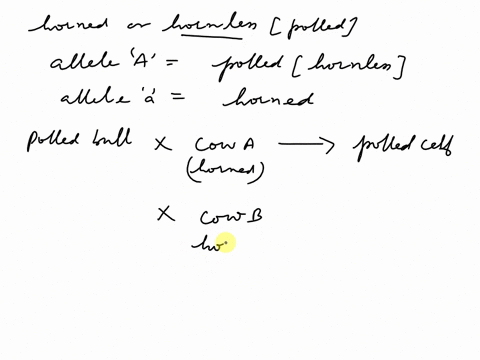 horned or hornless [polled]
allele 'A' = polled [hornless]
allele 'a' = horned
Polled bull X COW A ⟶ polled calf
(horned)
X COW B
ho